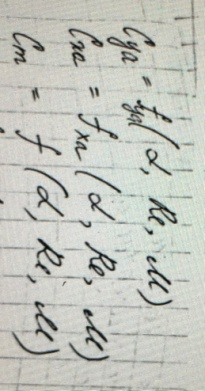 Cya = fya (α, Re, M)
Cxa = fxa (α, Re, M)
Cm = f (α, Re, M)